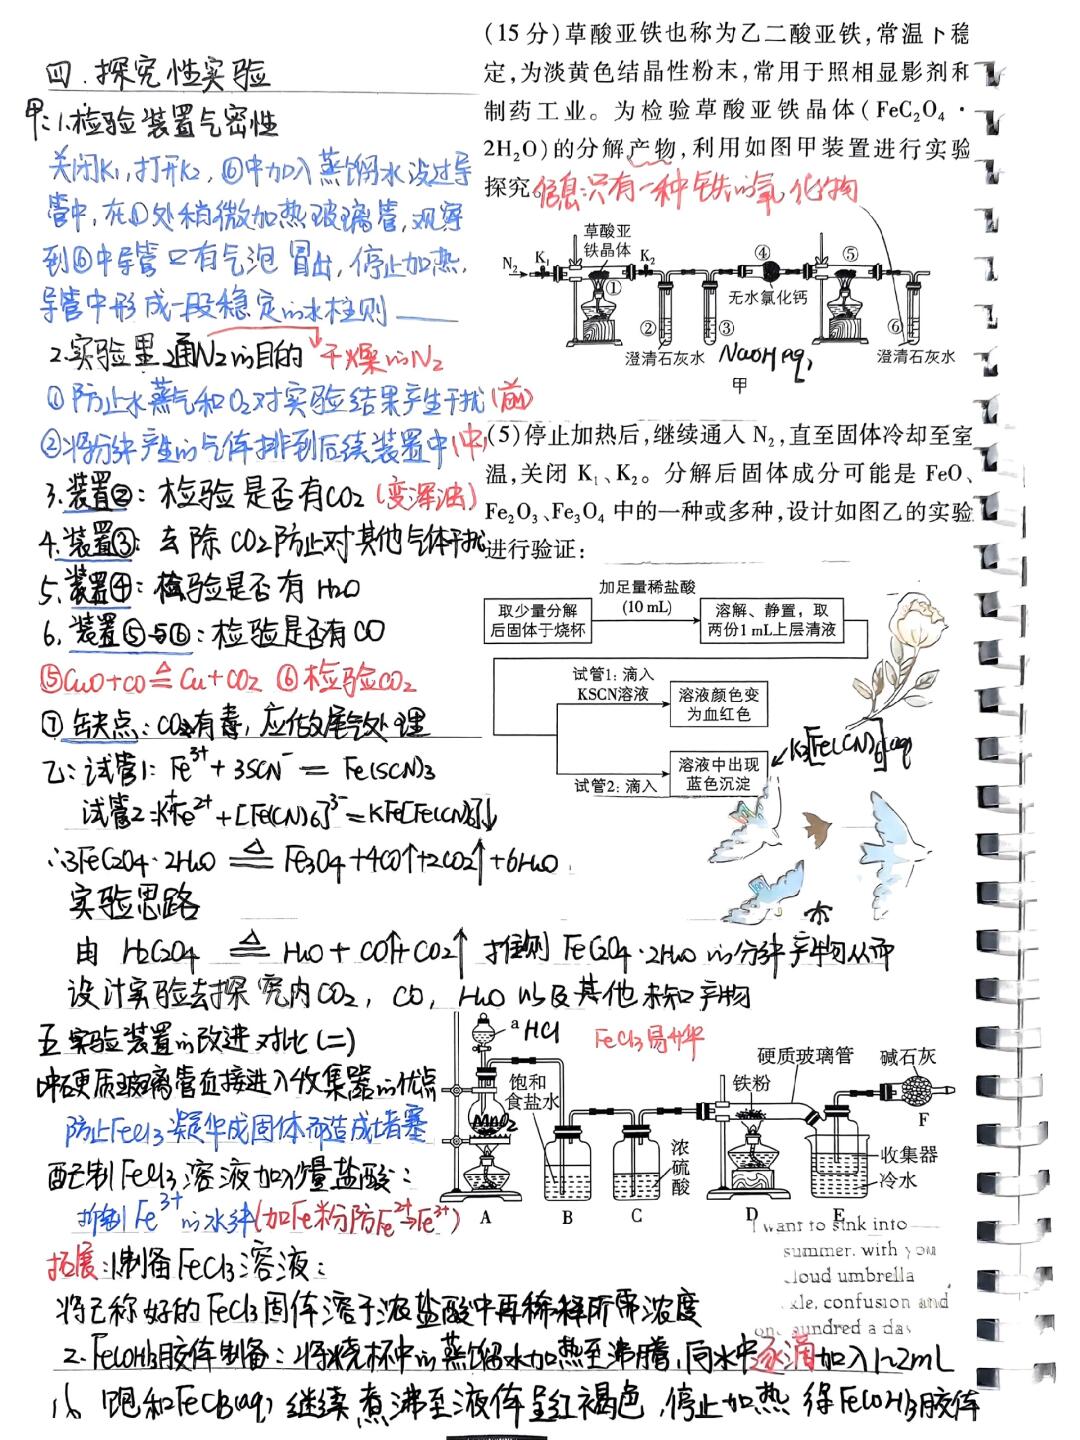 四.探究性实验
甲:1.检验装置气密性
关闭K₁,打开K₂,⑥中加入蒸馏水没过导
管中,在①处稍微加热玻璃管,观察
到⑥中导管口有气泡冒出,停止加热,
导管中形成一段稳定的水柱则
2.实验里通N₂的目的 干燥的N₂
①防止水蒸气和O₂对实验结果产生干扰(前)
②将分解产生的气体排到后续装置中(中)
3.装置②:检验是否有CO₂(变浑浊)
4.装置③:去除CO₂防止对其他气体干扰
5.装置④:检验是否有H₂O
6.装置⑤与⑥:检验是否有CO
⑤CuO+CO≜Cu+CO₂ ⑥检验CO₂
⑦缺点:CO有毒,应做尾气处理
乙:试管1:Fe³⁺+3SCN⁻=Fe(SCN)₃
试管2:K⁺+Fe²⁺+[Fe(CN)₆]³⁻=KFe[Fe(CN)₆]↓
∴3FeC₂O₄·2H₂O≜Fe₃O₄+4CO↑+2CO₂↑+6H₂O
实验思路
(15分)草酸亚铁也称为乙二酸亚铁,常温下稳
定,为淡黄色结晶性粉末,常用于照相显影剂和
制药工业。为检验草酸亚铁晶体(FeC₂O₄·
2H₂O)的分解产物,利用如图甲装置进行实验
探究。
信息:只有一种铁的氧化物
草酸亚
铁晶体
N₂
K₁
K₂
①
②
③
④
⑤
⑥
无水氯化钙
澄清石灰水
NaOH aq
澄清石灰水
甲
(5)停止加热后,继续通入N₂,直至固体冷却至室
温,关闭K₁、K₂。分解后固体成分可能是FeO、
Fe₂O₃、Fe₃O₄中的一种或多种,设计如图乙的实验
进行验证:
取少量分解
后固体于烧杯
加足量稀盐酸
(10 mL)
溶解、静置,取
两份1 mL上层清液
试管1:滴入
KSCN溶液
溶液颜色变
为血红色
试管2:滴入
溶液中出现
蓝色沉淀
K₃[Fe(CN)₆]aq
由H₂C₂O₄≜H₂O+CO↑+CO₂↑推测FeC₂O₄·2H₂O的分解产物从而
设计实验去探究内CO₂,CO,H₂O以及其他未知产物
五.实验装置的改进对比(二)
中硬质玻璃管直接进入收集器的优点
防止FeCl₃凝华成固体而造成堵塞
配制FeCl₃溶液加少量盐酸:
抑制Fe³⁺的水解(加Fe粉防Fe²⁺→Fe³⁺)
a HCl
FeCl₃易升华
MnO₂
饱和
食盐水
浓
硫
酸
铁粉
硬质玻璃管
碱石灰
收集器
冷水
A
B
C
D
E
F
I want to sink into
summer. with you
cloud umbrella
confusion and
hundred a day
拓展:1.制备FeCl₃溶液:
将已称好的FeCl₃固体溶于浓盐酸中再稀释所需浓度
2.Fe(OH)₃胶体制备:将烧杯中的蒸馏水加热至沸腾,向水中逐滴加入1~2mL
饱和FeCl₃(aq)继续煮沸至液体呈红褐色,停止加热得Fe(OH)₃胶体